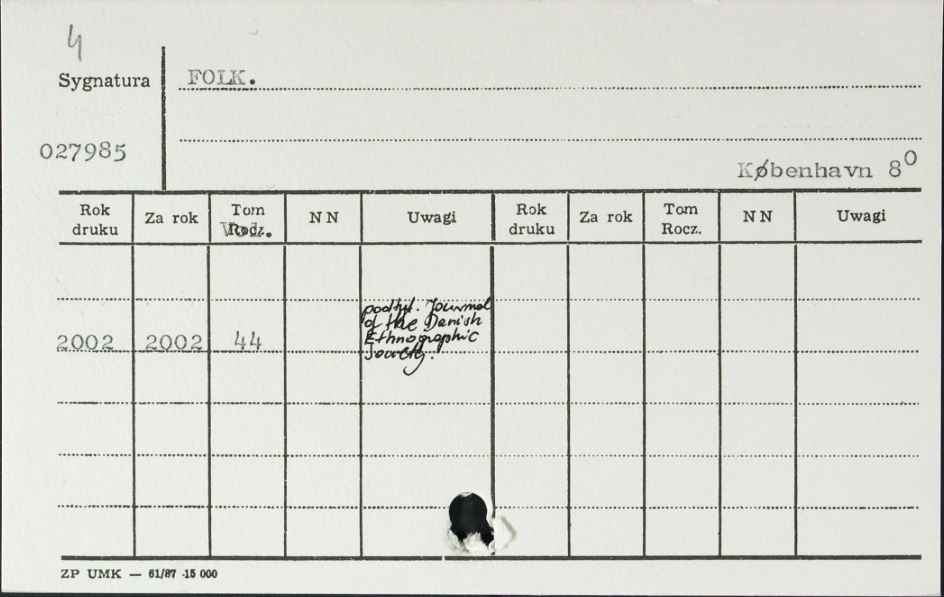 4
Sygnatura FOLK.
027985
København 8⁰
Rok druku Za rok Tom Vol. NN Uwagi Rok druku Za rok Tom Rocz. NN Uwagi
podtyt. Journal
of the Danish
Ethnographic
Society.
2002 2002 44
ZP UMK — 61/87 -15 000